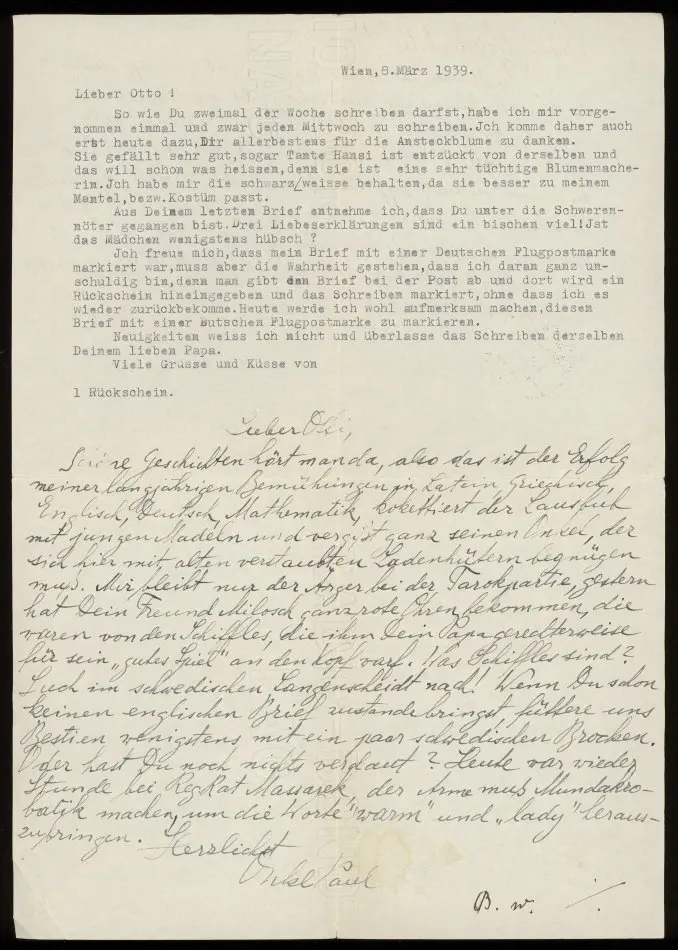 Wien,8.März 1939.
Lieber Otto !
So wie Du zweimal der Woche schreiben darfst,habe ich mir vorge-
nommen einmal und zwar jeden Mittwoch zu schreiben.Jch komme daher auch
erst heute dazu,Dir allerbestens für die Ansteckblume zu danken.
Sie gefällt sehr gut,sogar Tante Hansi ist entzückt von derselben und
das will schon was heissen,denn sie ist eine sehr tüchtige Blumenmache-
rin.Jch habe mir die schwarz/weisse behalten,da sie besser zu meinem
Mantel,bezw.Kostüm passt.
Aus Deinem letzten Brief entnehme ich,dass Du unter die Schweren-
nöter gegangen bist.Drei Liebeserklärungen sind ein bischen viel!Jst
das Mädchen wenigstens hübsch ?
Jch freue mich,dass mein Brief mit einer Deutschen Flugpostmarke
markiert war,muss aber die Wahrheit gestehen,dass ich daran ganz un-
schuldig bin,denn man gibt den Brief bei der Post ab und dort wird ein
Rückschein hineingegeben und das Schreiben markiert,ohne dass ich es
wieder zurückbekomme.Heute werde ich wohl aufmerksam machen,diesen
Brief mit einer Dutschen Flugpostmarke zu markieren.
Neuigkeiten weiss ich nicht und überlasse das Schreiben derselben
Deinem lieben Papa.
Viele Grüsse und Küsse von
1 Rückschein.
Lieber
Schöne Geschichten hört man da, also das ist der Erfolg
meiner langjährigen Bemühungen in Latein, Griechisch,
Englisch, Deutsch, Mathematik, kokettiert der Lausbub
mit jungen Mädeln und vergißt ganz seinen Onkel, der
sich hier mit alten verstaubten Ladenhütern begnügen
muß. Mir bleibt nur der Ärger bei der Tarokpartie, gestern
hat Dein Freund Milosch ganz rote Ohren bekommen, die
waren von den Schiffles, die ihm Dein Papa gerechterweise
für sein „gutes Spiel" an den Kopf warf. Was Schiffles sind?
Such im schwedischen Langenscheidt nach! Wenn Du schon
keinen englischen Brief zustande bringst, füttere uns
Bestien wenigstens mit ein paar schwedischen Brocken.
Oder hast Du noch nichts verdaut? Heute war wieder
Stunde bei Reg.Rat Massarek, der Arme muß Mundakro-
batik machen, um die Worte "warm" und „lady" heraus-
zubringen. Herzlichst
Onkel Paul
B. w. ./.